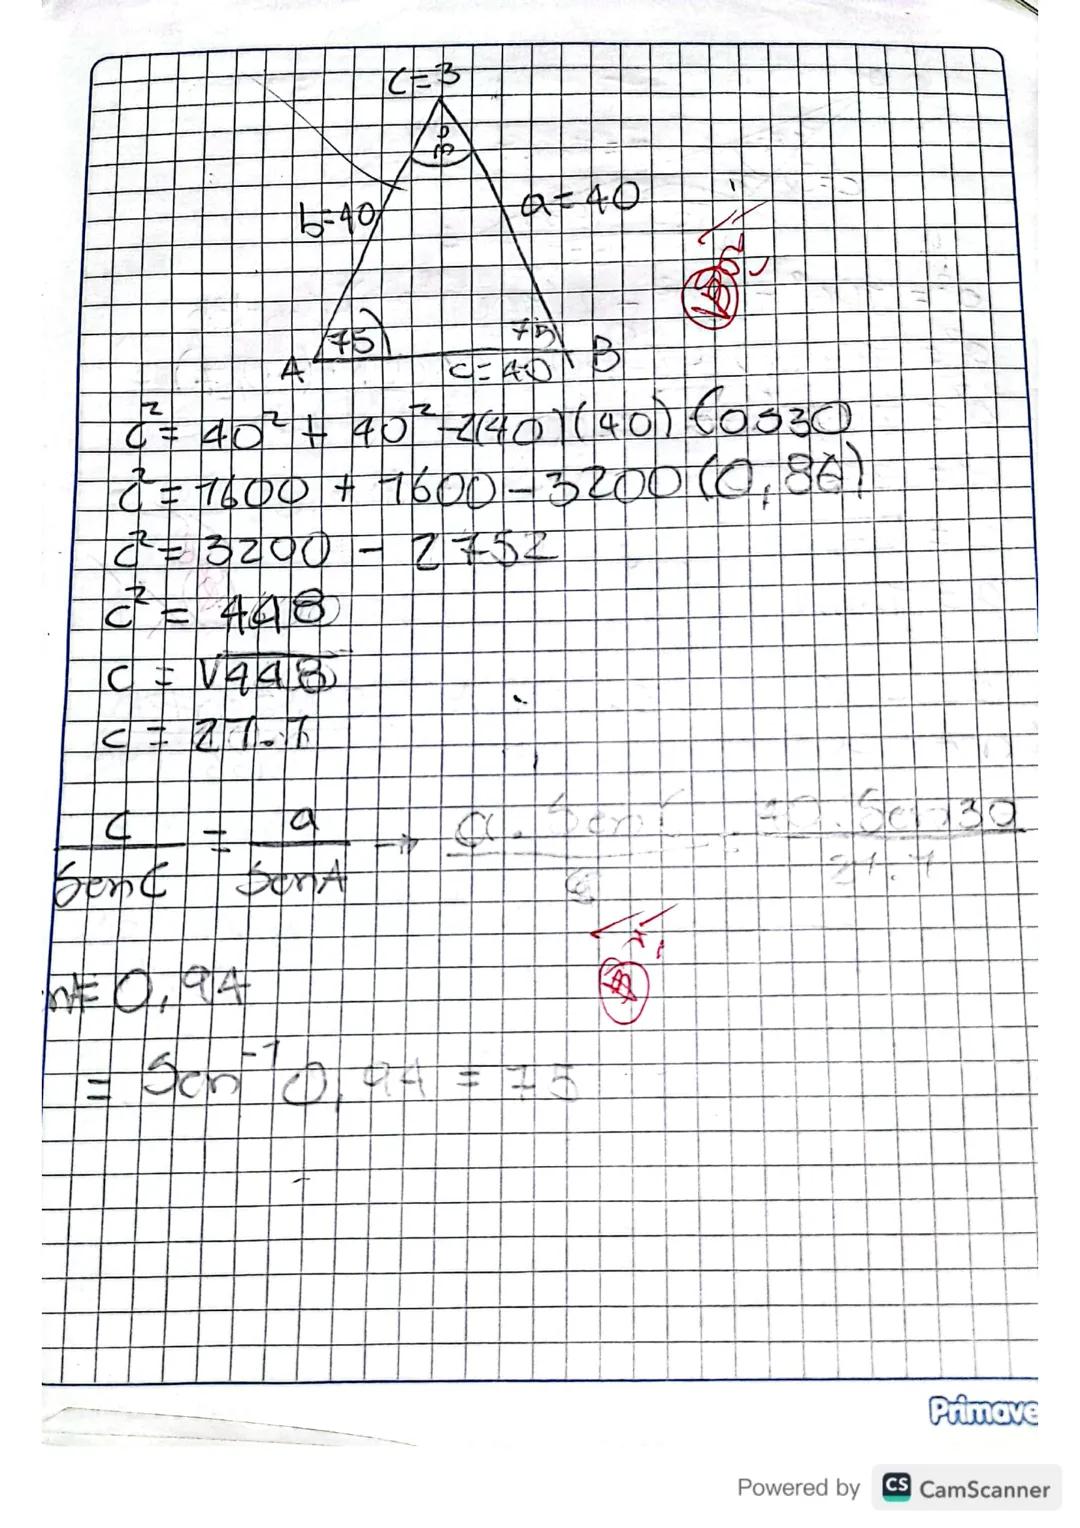 C=3
b=40
a=40
75
75
A
c=40
B
c²= 40² + 40² -2(40)(40) Cos30
c²= 1600 + 1600 - 3200 (0,86)
c²= 3200 - 2752
c² = 448
c = √448
c = 21.1
c/SenC = a/SenA → a.SenC/c = 40.Sen30/21.1
= 0,94
= Sen⁻¹ 0,94 = 75
Primave
Powered by CS CamScanner